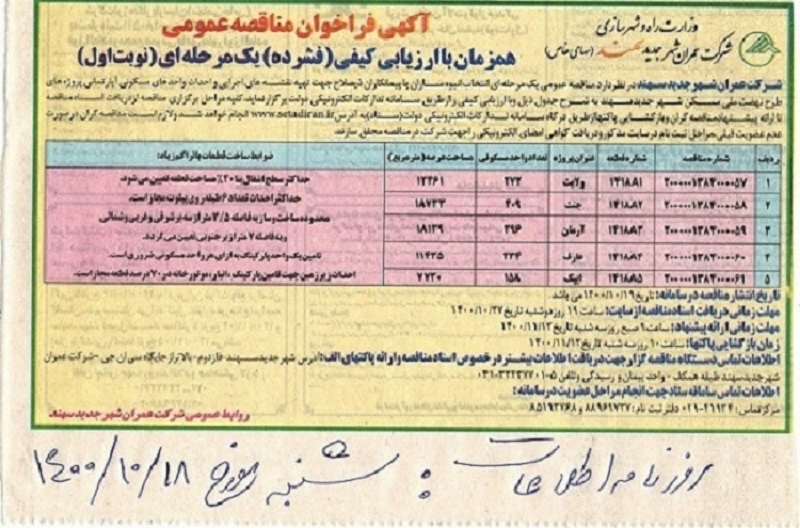 وزارت راه و شهرسازی
شرکت عمران شهر جدید سهند (سهامی خاص)
آگهی فراخوان مناقصه عمومی
همزمان با ارزیابی کیفی (فشرده) یک مرحله‌ای (نوبت اول)
شرکت عمران شهر جدید سهند در نظر دارد، مناقصه عمومی یک مرحله‌ای انتخاب انبوه سازان یا پیمانکاران ذیصلاح جهت تهیه نقشه‌های اجرایی و احداث واحدهای مسکونی آپارتمانی پروژه‌های
طرح نهضت ملی مسکن شهر جدید سهند به شرح جدول ذیل و با ارزیابی کیفی را از طریق سامانه تدارکات الکترونیکی دولت برگزار نماید. کلیه مراحل برگزاری مناقصه از دریافت اسناد مناقصه
تا ارائه پیشنهاد مناقصه گران و بازگشایی پاکتها از طریق درگاه سامانه تدارکات الکترونیکی دولت (ستاد) به آدرس www.setadiran.ir انجام خواهد شد و لازم است مناقصه گران در صورت
عدم عضویت قبلی، مراحل ثبت نام در سایت مذکور و دریافت گواهی امضای الکترونیکی را جهت شرکت در مناقصه محقق سازند.
ردیف شماره مناقصه شماره قطعه عنوان پروژه تعداد واحد مسکونی مساحت عرصه (متر مربع) ضوابط ساخت قطعات با تراکم زیاد:
۱ ۲۰۰۰۰۰۱۳۸۴۰۰۰۰۵۷ ۱۴۱۸A۱ ولایت ۲۷۳ ۱۳۲۶۱ حداکثر سطح اشغال بنا ۳۰٪ مساحت قطعه تعیین می‌شود.
۲ ۲۰۰۰۰۰۱۳۸۴۰۰۰۰۵۸ ۱۴۱۸A۲ جنت ۴۰۹ ۱۸۷۳۳ حداکثر احداث تعداد ۶ طبقه روی پیلوت مجاز است.
۳ ۲۰۰۰۰۰۱۳۸۴۰۰۰۰۵۹ ۱۴۱۸A۳ آرمان ۳۹۶ ۱۸۱۳۹ محدوده ساخت و ساز به فاصله ۱۲/۵ متر از سه بر شرقی و غربی و شمالی
و به فاصله ۷ متر از بر جنوبی تعیین می‌گردد.
۴ ۲۰۰۰۰۰۱۳۸۴۰۰۰۰۶۰ عارف ۲۳۴ ۱۱۴۳۵ تامین یک واحد پارکینگ به ازای هر واحد مسکونی ضروری است.
۵ ۲۰۰۰۰۰۱۳۸۴۰۰۰۰۶۱ ۱۴۱۸A۵ ۱۵۸ ۷۷۲۰ احداث زیرزمین جهت تامین پارکینگ، انباری، موتورخانه در ۷۰ درصد قطعه مجاز است.
تاریخ انتشار مناقصه در سامانه: تاریخ ۱۴۰۰/۱۰/۱۹ می باشد.
مهلت زمانی دریافت اسناد مناقصه از سایت: ساعت ۱۹ روز دوشنبه تاریخ ۱۴۰۰/۱۰/۲۷
مهلت زمانی ارائه پیشنهاد: ساعت ۸ صبح روز سه شنبه تاریخ ۱۴۰۰/۱۱/۱۲
زمان بازگشایی پاکتها: ساعت ۱۰ روز سه شنبه تاریخ ۱۴۰۰/۱۱/۱۲
اطلاعات تماس دستگاه مناقصه گزار جهت دریافت اطلاعات بیشتر در خصوص اسناد مناقصه و ارائه پاکتهای الف: آدرس شهر جدید سهند فاز دوم - بالاتر از جایگاه سی ان جی - شرکت عمران
شهر جدید سهند طبقه همکف - واحد پیمان و رسیدگی و تلفن
اطلاعات تماس سامانه ستاد جهت انجام مراحل عضویت در سامانه:
مرکز تماس: دفتر ثبت نام: ۸۸۹۶۹۷۳۷ و ۸۵۱۹۳۷۶۸
روابط عمومی شرکت عمران شهر جدید سهند
روزنامه اطلاعات : شنبه مورخ ۱۴۰۰/۱۰/۱۸